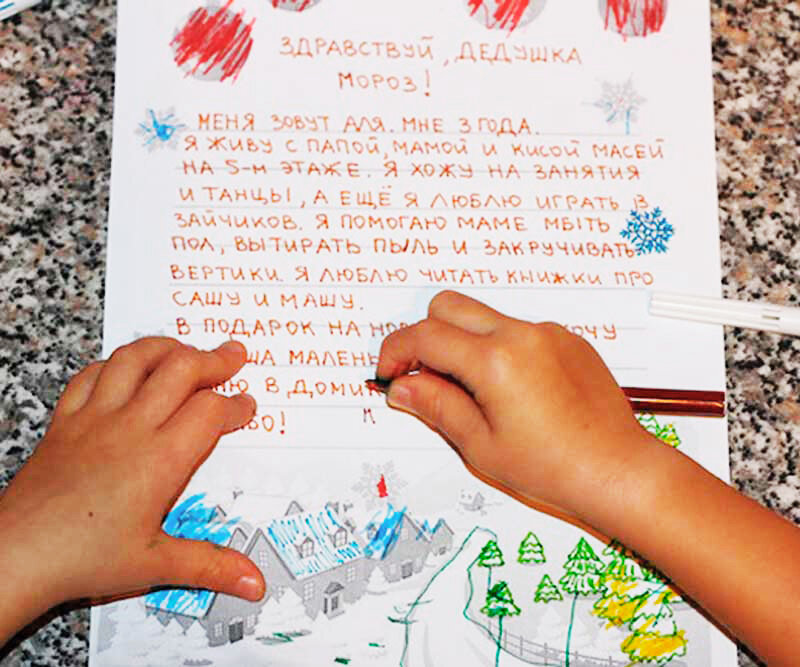 ЗДРАВСТВУЙ, ДЕДУШКА
МОРОЗ!
МЕНЯ ЗОВУТ АЛЯ. МНЕ 3 ГОДА.
Я ЖИВУ С ПАПОЙ, МАМОЙ И КИСОЙ МАСЕЙ
НА 5-М ЭТАЖЕ. Я ХОЖУ НА ЗАНЯТИЯ
И ТАНЦЫ, А ЕЩЁ Я ЛЮБЛЮ ИГРАТЬ В
ЗАЙЧИКОВ. Я ПОМОГАЮ МАМЕ МЫТЬ
ПОЛ, ВЫТИРАТЬ ПЫЛЬ И ЗАКРУЧИВАТЬ
ВЕРТИКИ. Я ЛЮБЛЮ ЧИТАТЬ КНИЖКИ ПРО
САШУ И МАШУ.
В ПОДАРОК НА
В ДОМИК